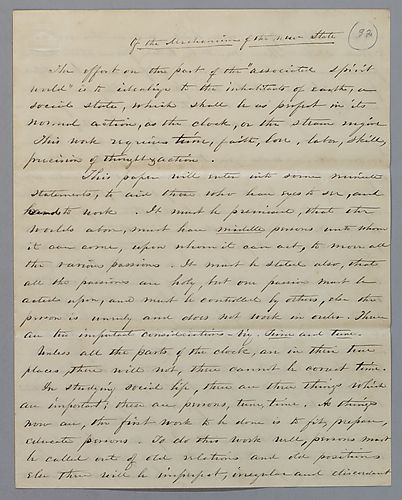 Of the Mechanism of the new State
The effort on the part of the "associated spirit
world" is to idealize to the inhabitants of earth, a
social state, which shall be as perfect in its
normal action, as the clock, or the steam engine
This work requires time, faith, love, labor, skill,
precision of thought & action.
This paper will enter into some minute
statements, to aid those who have eyes to see, and
hands to work. It must be premised, that the
worlds above, must have middle persons unto whom
it can come, upon whom it can act, to move all
the various passions. It must be stated also, that
all the passions are holy, but one passion must be
acted upon, and must be controlled by others, else the
person is unruly and does not work in order. These
are the important considerations - viz. Time and tune.
Unless all the parts of the clock, are in their true
places, there will not, there cannot be correct time.
In studying social life, there are three things which
are important; these are persons, tune, time. As things
now are, the first work to be done is to fit, prepare,
educate persons. To do this work well, persons must
be called out of old relations and old positions
Else there will be imperfect, irregular and discordant